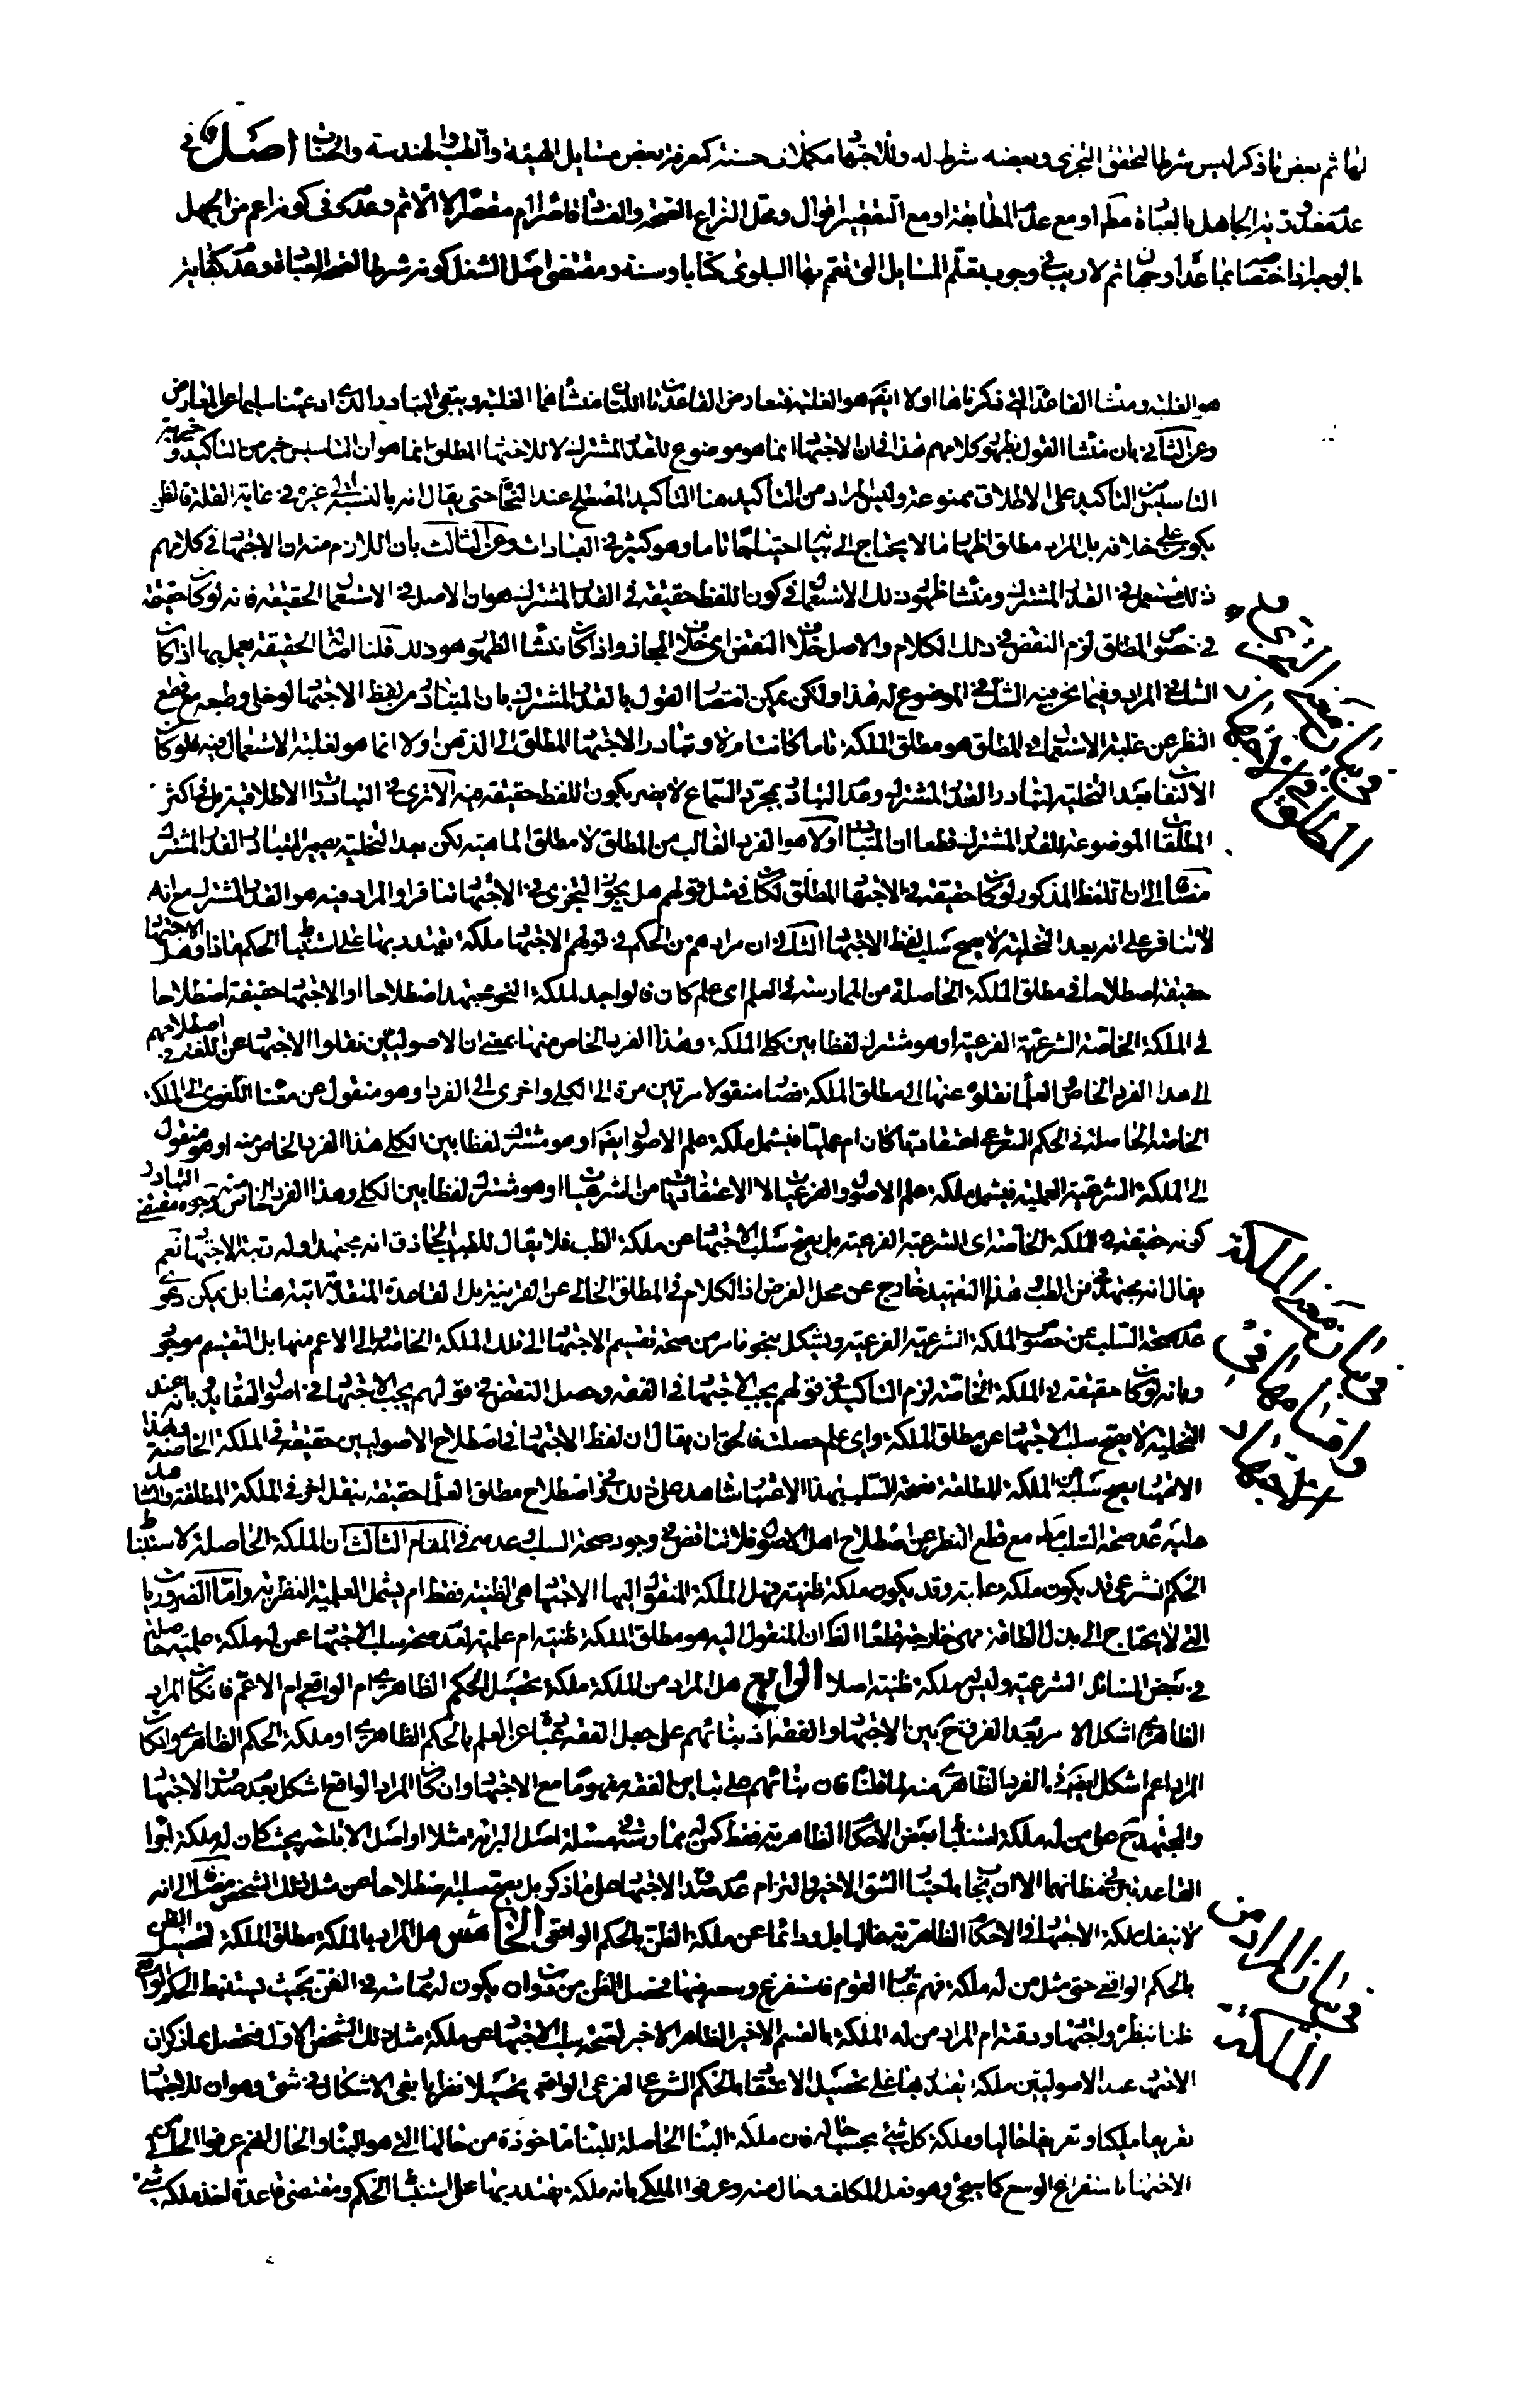 لها ثم بعض ما ذكر ليس شرطا لتحقق التجزى وبعضه شرط له وللاجتهاد مكملات حسنة كمعرفة بعض مسائل الهيئة والطب والهندسة والحساب اصل في
عدم معذورية الجاهل بالعبادة مط او مع عدم المطابقة او مع التقصير اقوال ومحل النزاع الصحة والفساد قاصرا ام مقصرا لا الاثم وعدمه وفى كونه اعم من الجهل
ثم لا ريب في وجوب تعلم المسائل التى تعم بها البلوى كتابا وسنة ومقتضى اصل الشغل كونه شرطا لصحة العبادة وعدم كفاية
هو الغلبة ومنشا القاعدة التى ذكرناها اولا ايضا هو الغلبة فتعارض القاعدتان اللتان منشاهما الغلبة ويبقى التبادر الذى ادعينا سليما عن المعارض
وعن الثانى بان منشا القول بظهور كلامهم هذا فى ان الاجتهاد انما هو موضوع للقدر المشترك لا للاجتهاد المطلق انما هو ان التاسيس خير من التاكيد وخيرية
التاسيس من التاكيد على الاطلاق ممنوعة وليس المراد من التاكيد هنا التاكيد المصطلح عند النحاة حتى يقال انه بالنسبة الى غيره في غاية القلة فالظن
يكون على خلافه بل المراد مطلق اظهار ما لا يحتاج الى بيانه احتياجا تاما وهو كثير في العبادات وعن الثالث بان اللازم منه ان الاجتهاد فى كلامهم
ذلك مستعمل في القدر المشترك ومنشا ظهور ذلك الاستعمال فى كون اللفظ حقيقة فى القدر المشترك هو ان الاصل في الاستعمال الحقيقة فانه لو كان حقيقة
في خصوص المطلق لزم النقض في ذلك الكلام والاصل خلاف النقض اى خلاف المجاز واذا كان منشا الظهور هو ذلك قلنا اصالة الحقيقة يعمل بها اذا كان
الشك فى المراد وفيما نحن فيه الشك في الموضوع له هذا ولكن يمكن انتصار القول بالقدر المشترك بان المتبادر من لفظ الاجتهاد لو خلى وطبعه مع قطع
النظر عن غلبة الاستعمال فى المطلق هو مطلق الملكة تاما كانت ام لا وتبادر الاجتهاد المطلق الى الذهن اولا انما هو لغلبة الاستعمال فيه فلو كان
الالتفات بعد التخلية لتبادر القدر المشترك وعدم التبادر بمجرد السماع لا يضر بكون اللفظ حقيقة فيه الا ترى في التبادرات الاطلاقية بل فى اكثر
المطلقات الموضوعة للقدر المشترك قطعا ان المتبادر اولا هو الفرد الغالب من المطلق لا مطلق الماهية لكن بعد التخلية يصير المتبادر القدر المشترك
مضافا الى ان اللفظ المذكور لو كان حقيقة فى الاجتهاد المطلق لكان فى مثل قولهم هل يجوز التجزى في الاجتهاد تنافر او المراد فيه هو القدر المشترك مع انه
لا تنافر على انه بعد التخلية لا يصح سلب لفظ الاجتهاد الثانى ان مرادهم من الحكم فى قولهم الاجتهاد ملكة يقتدر بها على استنباط الحكم ماذا وهل الاجتهاد
حقيقة اصطلاحا فى مطلق الملكة الحاصلة من الممارسة فى العلم اى علم كان فالواجد لملكة النحو مجتهد اصطلاحا او الاجتهاد حقيقة اصطلاحا
في الملكة الخاصة الشرعية الفرعية او هو مشترك لفظا بين كلى الملكة وهذا الفرد الخاص منها بمعنى ان الاصوليين نقلوا الاجتهاد عن اللغة فى اصطلاحهم
الى هذا الفرد الخاص نقلوه عنها الى مطلق الملكة فصار منقولا مرتين مرة الى الكلى واخرى الى الفرد او هو منقول عن معناه اللغوى الى الملكة
الخاصة الحاصلة فى الحكم الشرعى اعتقاديا كان ام عمليا فيشمل ملكة علم الاصول ايضا او هو مشترك لفظا بين الكلى وهذا الفرد الخاص منه او هو منقول
الى الملكة الشرعية العملية فيشمل ملكة علم الاصول والفرعيات لا الاعتقاديات من الشرعيات او هو مشترك لفظا بين الكلى وهذا الفرد الخاص منه وجوه مقتضى التبادر
كونه حقيقة في الملكة الخاصة اى الشرعية الفرعية بل يصح سلب الاجتهاد عن ملكة الطب فلا يقال للطبيب الحاذق انه مجتهد او له رتبة الاجتهاد نعم
يقال انه مجتهد في فن الطب وهذا التقييد خارج عن محل الفرض اذ الكلام فى المطلق الخالى عن القرينة بل القاعدة المتقدمة اتية هنا بل يمكن دعوى
عدم صحة السلب عن خصوص الملكة الشرعية الفرعية ويشكل بنحو ما مر من صحة تقسيم الاجتهاد الى تلك الملكة الخاصة والى الاعم منها بل التقسيم موجود
وبانه لو كان حقيقة فى الملكة الخاصة لزم التاكيد في قولهم يجب الاجتهاد فى الفقه وحصل النقض في قولهم يجب الاجتهاد فى اصول العقايد وبانه عند
التخلية لا يصح سلب الاجتهاد عن مطلق الملكة واى علم حصلت فالحق ان يقال ان لفظ الاجتهاد فى اصطلاح الاصوليين حقيقة فى الملكة الخاصة وبهذا
الاعتبار يصح سلبه عن الملكة المطلقة فصحة السلب بهذا الاعتبار شاهد على ذلك وفي اصطلاح مطلق العلماء حقيقة بنقل اخر فى الملكة المطلقة والشاهد
عليه عدم صحة السلب مط مع قطع النظر عن اصطلاح اهل الاصول فلا تناقض في وجود صحة السلب وعدمه المقام الثالث ان الملكة الحاصلة لاستنباط
الحكم الشرعى قد يكون ملكة علمية وقد يكون ملكة ظنية فهل الملكة المنقول اليها الاجتهاد هى الظنية فقط ام يشمل العلمية النظرية واما الضروريات
التى لا يحتاج الى بذل الطاقة فهى خارجة قطعا الظ ان المنقول اليه هو مطلق الملكة ظنية ام علمية لعدم صحة سلب الاجتهاد عمن له ملكة علمية حاصلة
في بعض المسائل الشرعية وليس ملكة ظنية اصلا الرابع هل المراد من الملكة ملكة تحصيل الحكم الظاهرى ام الواقعى ام الاعم فان كان المراد
الظاهرى اشكل الامر بعدم الفرق ح بين الاجتهاد والفقه اذ بنائهم على جعل الفقه عبارة عن العلم بالحكم الظاهرى او ملكة الحكم الظاهرى وان كان
المراد اعم اشكل ايضا في الفرد الظاهرى منه لما قلنا فان بنائهم على تباين الفقه مفهوما مع الاجتهاد وان كان المراد الواقع اشكل بعدم صدق الاجتهاد
والمجتهد ح على من له ملكة استنباط بعض الاحكام الظاهرية فقط كمن له ممارسة في مسئلة اصل البرائة مثلا او اصل الاباحة بحيث كان له ملكة اجراء
القاعدتين في مظانهما الا ان يجاب باختيار الشق الاخير والتزام عدم صدق الاجتهاد على ما ذكر بل يصح سلبه اصطلاحا عن مثل ذلك الشخص مضافا الى انه
لا ينفك ملكة الاجتهاد فى الاحكام الظاهرية غالبا بل ودائما عن ملكة الظن بالحكم الواقعى الخامس هل المراد بالملكة مطلق الملكة لتحصيل الظن
بالحكم الواقعى حتى مثل من له ملكة فهم عبارات القوم فاستفرغ وسعه فيها فحصل الظن من دون ان يكون له ممارسة فى الفن بحيث يستنبط الحكم الواقعى
ظنا بنظره واجتهاده ودقته ام المراد من له الملكة بالقسم الاخير الظاهر الاخير لصحة سلب الاجتهاد عن ملكة مثل ذلك الشخص الاول فتحصل مما ذكر ان
الاجتهاد عند الاصوليين ملكة يقتدر بها على تحصيل الاعتقاد بالحكم الشرعى الفرعى الواقعى تحصيلا نظريا بقى الاشكال في شئ وهو ان للاجتهاد
تعريفا ملكيا وتعريفا حاليا وملكة كل شئ بحسب حاله فان ملكة البناء الحاصلة للبناء ماخوذة من حالها التى هو البناء والحال انهم عرفوا الحالى من
الاجتهاد باستفراغ الوسع كما سيجئ وهو فعل المكلف وحال منه وعرفوا الملكى بانه ملكة يقتدر بها على استنباط الحكم ومقتضى قاعدة اخذ ملكة شئ
في بيان معنى الملكة
واقسامها في
الاجتهاد
في بيان المراد من
الملكة